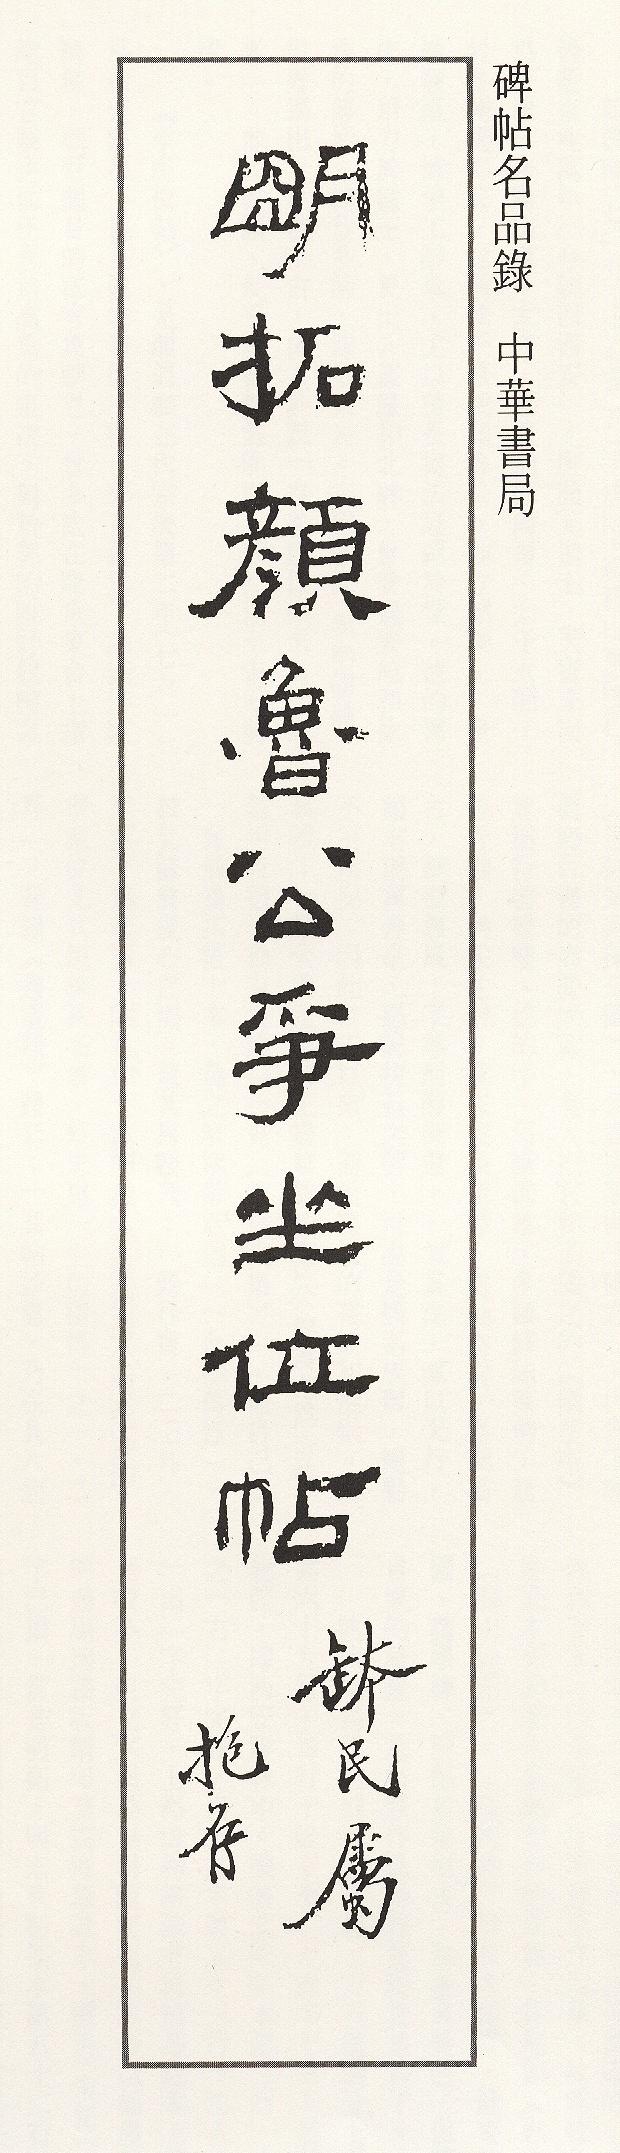 碑帖名品錄　中華書局
明拓顔魯公爭坐位帖
缽民屬
抱存